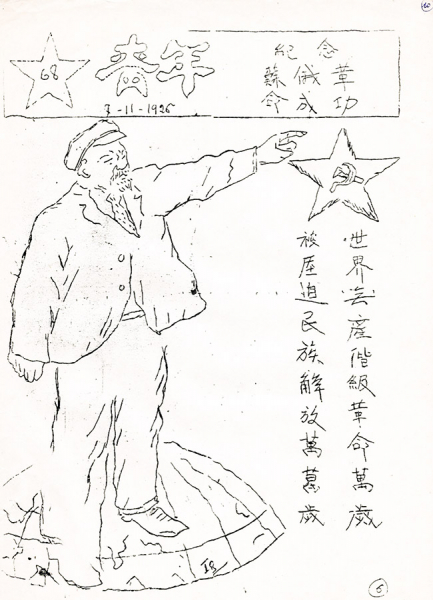 68
青年
7-11-1926
紀念
蘇俄革
命成功
世界無產偕級革命萬歲
被压迫民族解放萬萬歲
6